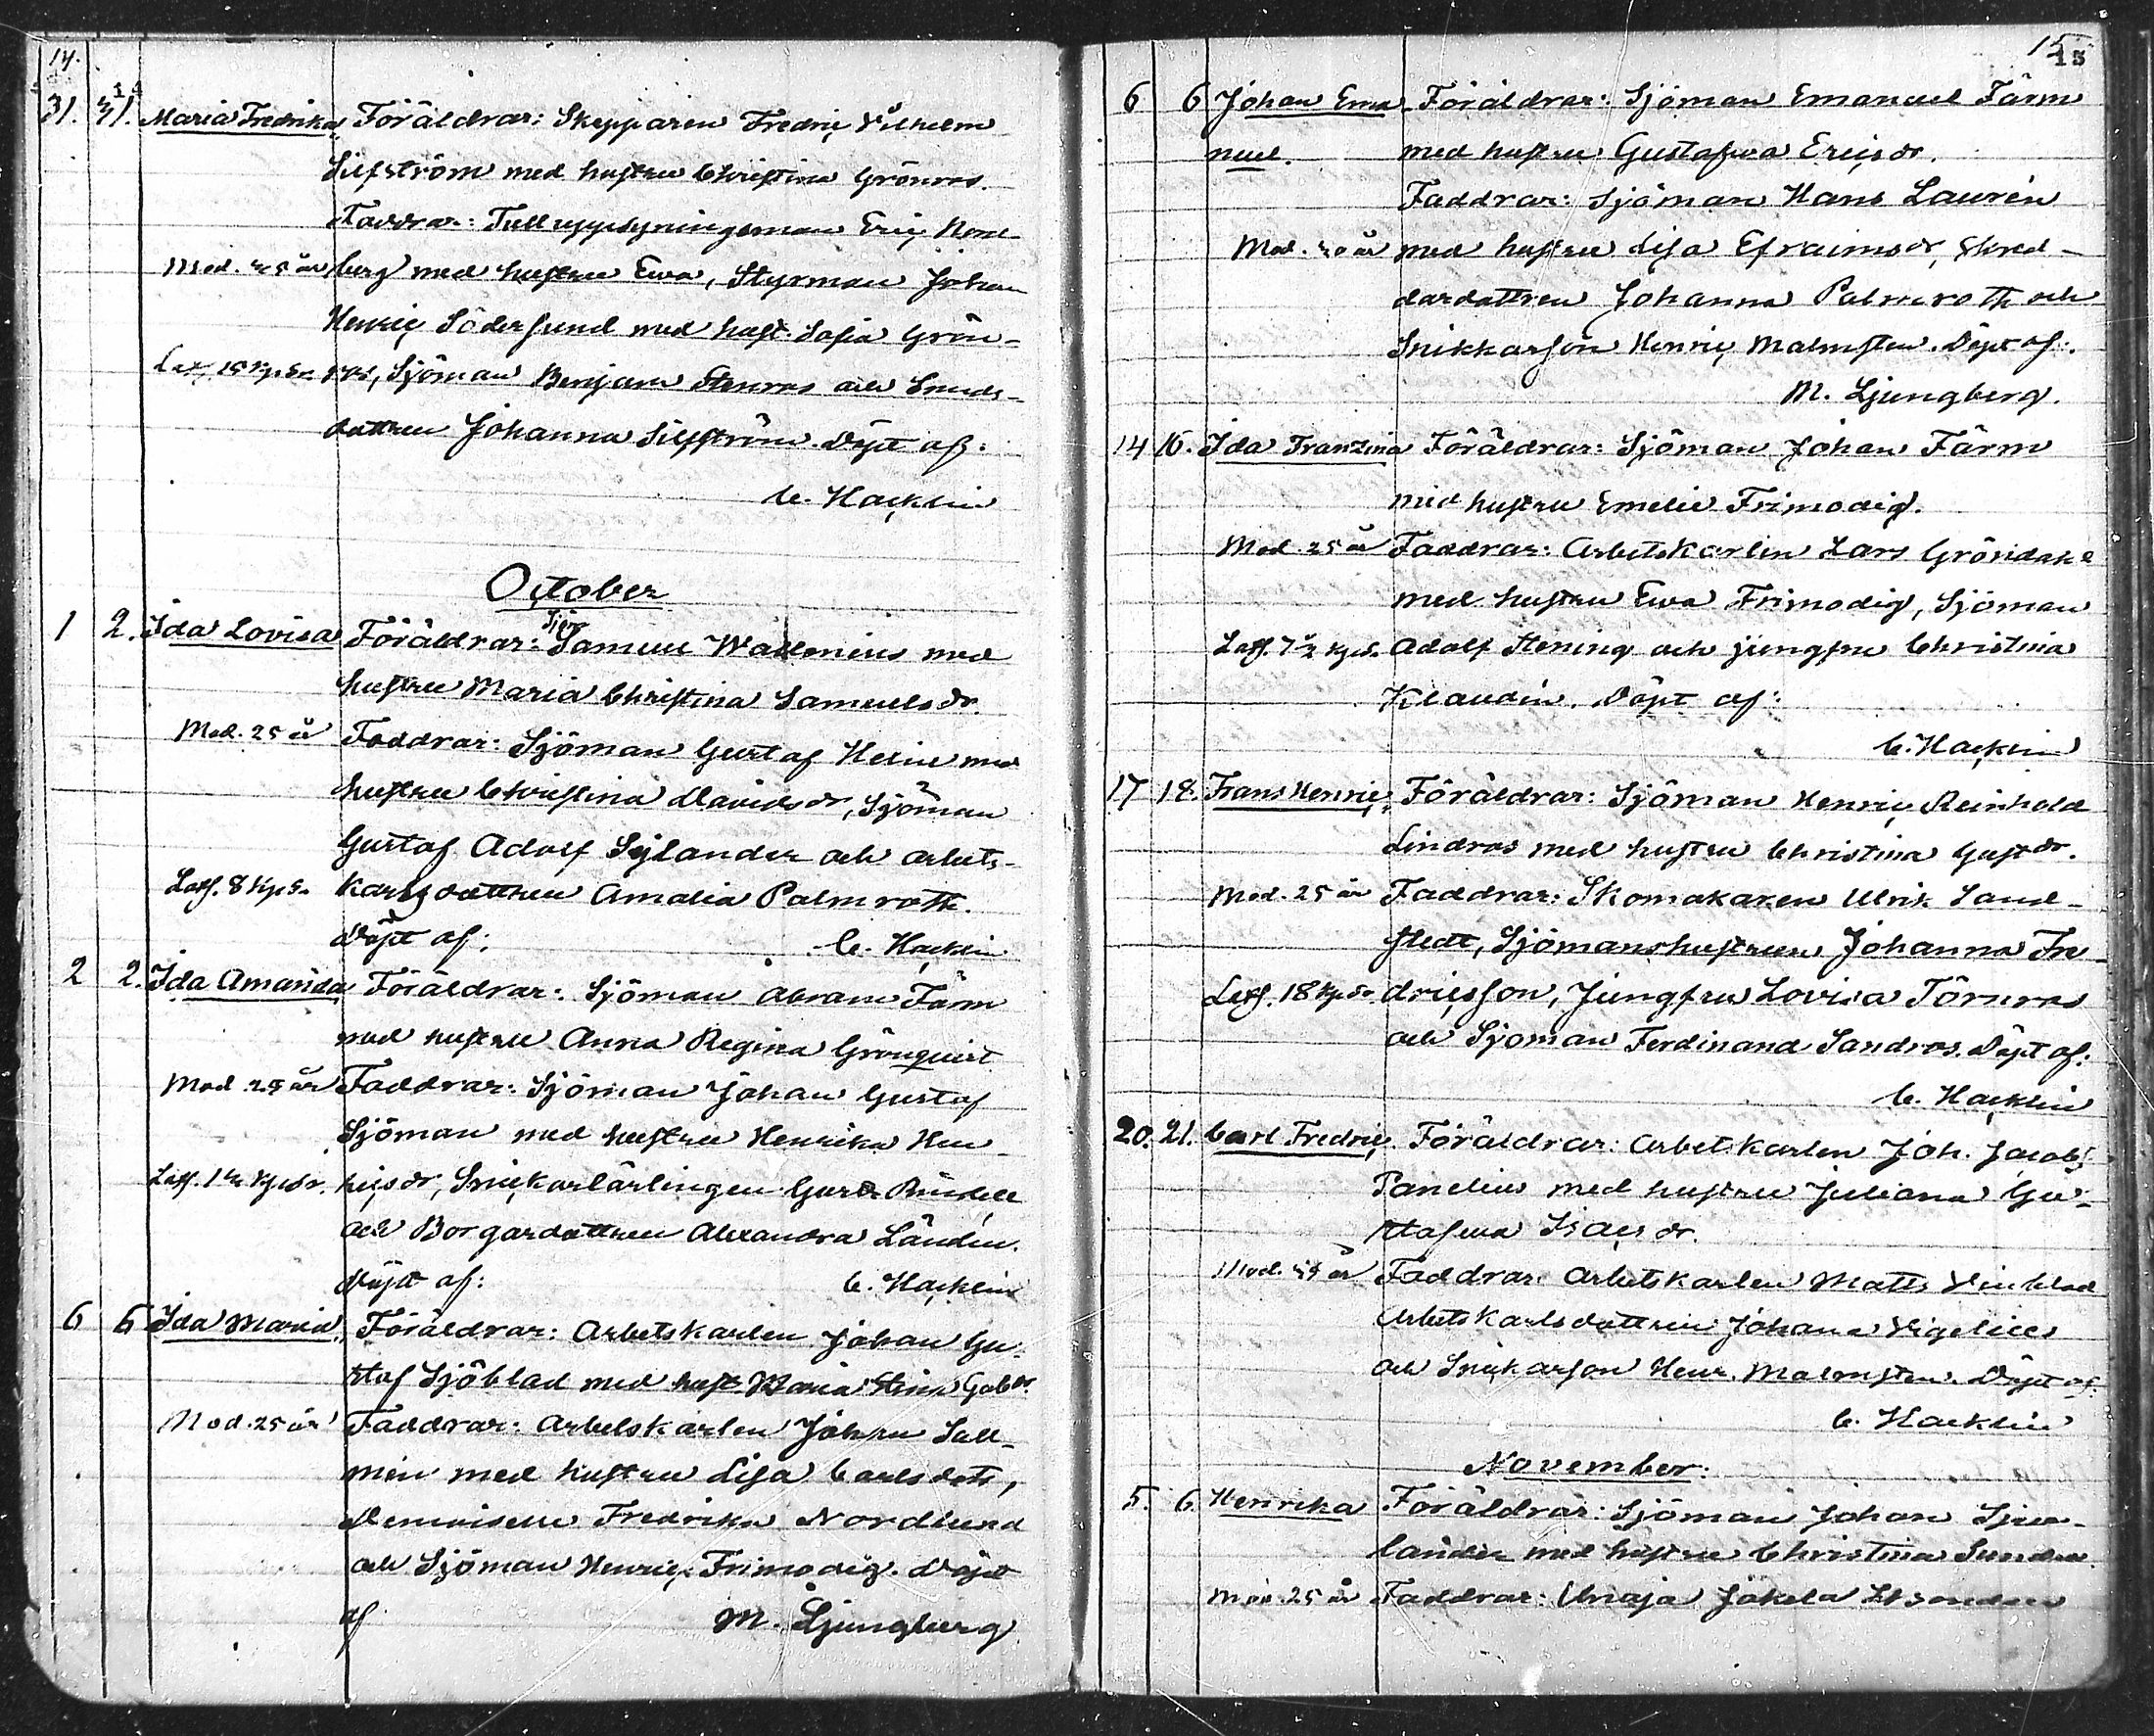 14.
31. 31. Maria Fredrika Föräldrar: Skepparen Fredriç Vilhelm
Silfström med hustru Christina Grönros.
Faddrar: Tulluppsyningsman Eriç Nord-
Mod. år berg med hustru Ewa, Styrman Johan
Henriç Södersund med hust. Sofia Grön-
ros, Sjöman Benjam Stenros och
dottren Johanna Silfström. Döpt af:
C. Haçklin
October
1 2. Ida Lovisa Föräldrar: Sjöm Samuel Wallenius med
hustru Maria Christina Samuelsdr.
Mod. 25 år Faddrar: Sjöman Gustaf Helin med
hustru Christina Davidsdr, Sjöman
Gustaf Adolf Sylander och arbets-
Laxf. 8 kp.sr. karlsdottren Amalia Palmroth.
Döpt af: C. Haçklin
2 2. Ida Amanda Föräldrar: Sjöman Abram Färm
med hustru Anna Regina Grönquist
Mod år Faddrar: Sjöman Johan Gustaf
Sjöman med hustru Henrika Hen-
riçsdr, Sniçkarlärlingen Rundell
och Borgardottren Alexandra Ländin.
Döpt af: C. Haçklin
6 6 Ida Maria. Föräldrar: Arbetskarlen Johan Gu-
staf Sjöblad med hust Maria Stina Gabdr.
Mod. 25 år Faddrar: Arbetskarlen Johan Sall-
min med hustru Lisa Carlsdotr,
Demoiselle Fredrika Nordlund
och Sjöman Henriç Frimodig. Döpt
af M. Ljungberg
15
13
6 6 Johan Ema- Föräldrar: Sjöman Emanuel Färm
nuel. med hustru Gustafwa Ericsdr.
Faddrar: Sjöman Hans Laurén
Mod. år med hustru Lisa Efraimsdr, Skred-
dardottren Johanna Palmroth och
Snikkarson Henriç Malmsten. Döpt af:
M. Ljungberg.
14 16. Ida Franzina Föräldrar: Sjöman Johan Färm
med hustru Emelie Frimodig.
Mod. 25 år Faddrar: Arbetskarlen Lars Gröndahl
med hustru Ewa Frimodig, Sjöman
Adolf Stening och jungfru Christina
Klaudin. Döpt af:
C. Haçklin
17 18. Frans Henriç, Föräldrar: Sjöman Henriç Reinhold
Lindros med hustru Christina Gustdr.
Mod. 25 år Faddrar: Skomakaren Ulrik Sand-
stedt, Sjömanshustrun Johanna Fre-
Laxf. 18 kp.sr dricsson, Jungfru Lovisa Törnros
och Sjöman Ferdinand Sandros. Döpt af:
C. Haçklin
20. 21. Carl Fredriç, Föräldrar: Arbetskarlen Joh. Jacob
Panelius med hustru Juliana Gu-
stafwa Isacsdr.
Mod. år Faddrar: Arbetskarlen Matts
Arbetskarlsdottren Johana Vigelius
och Sniçkarson Henr. Malmsten. Döpt af.
C. Hacklin
November:
5. 6. Henrika Föräldrar: Sjöman Johan
lander med hustru Christina
Mod. 25 år Faddrar: Jäkelä